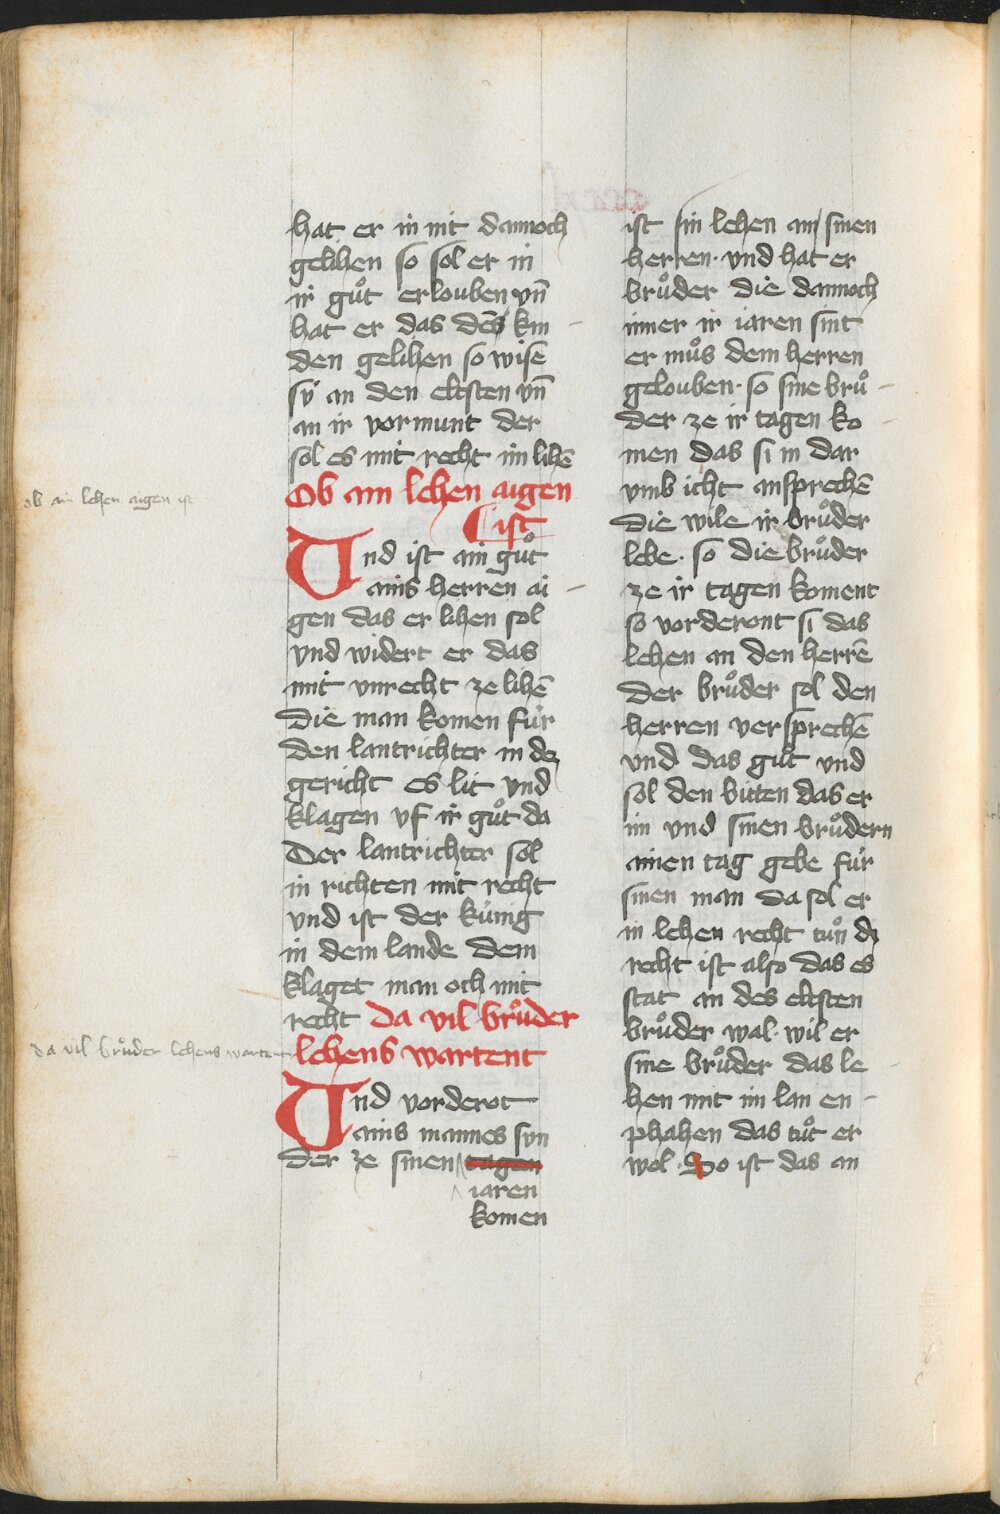 hat er in nit dannoch
gelihen so sol er in
ir guͦt erlouben vn̄
hat er das dēs kin
den gelihen so wise
sÿ an den eltsten vn̄
an ir vormunt der
sol es mit recht im lihē
ob ain lehen aigen ist
Ob ain lehen aigen
ist
Vnd ist ain guͦt
ains herren ai
gen das er lihen sol
vnd widert er das
mit vnrecht ze lihē
die man komen für
den lantrichter in dez
gericht es lit vnd
klagen vf ir guͦt da
Der lantrichter sol
in richten mit recht
vnd ist der künig
in dem lande dem
klaget man och mit
recht Da vil bruͦder
da vil bruͦder lehens wartent
lehens wartent
Vnd vorderot
ains mannes sun
der ze sinen tagen
iaren
komen
ist sin lehen an sinen
herren· vnd hat er
bruͦder die dannoch
inner ir iaren sint
er muͦs dem herren
gelouben· so sine bruͦ
der ze ir tagen ko
men das si in dar
vmb icht ansprechē
die wile ir bruͦder
lebe· so die bruͦder
ze ir tagen koment
so vorderont si das
lehen an den herrē
der bruͦder sol den
herren versprechē
vnd das guͦt vnd
sol den bitten das er
im vnd sinen bruͦdern
ainen tag gebe für
sinen man da sol er
in lehen recht tuͦn dz
recht ist also das es
stat an des eltsten
bruͦder wal· wil er
sine bruͦder das le
hen mit im lan en
phahen das tuͦt er
wol· So ist das an